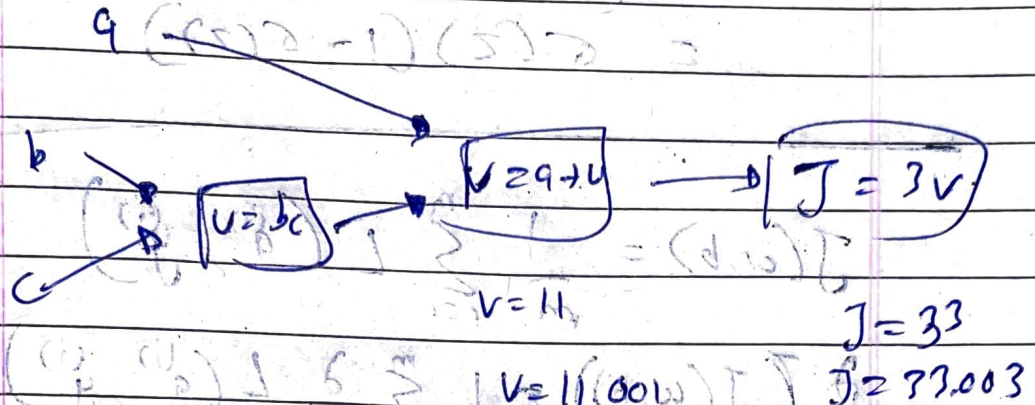 a
b
c
u = bc
v = a + u
J = 3v
v = 11
J = 33
v = 11.001
J = 33.003